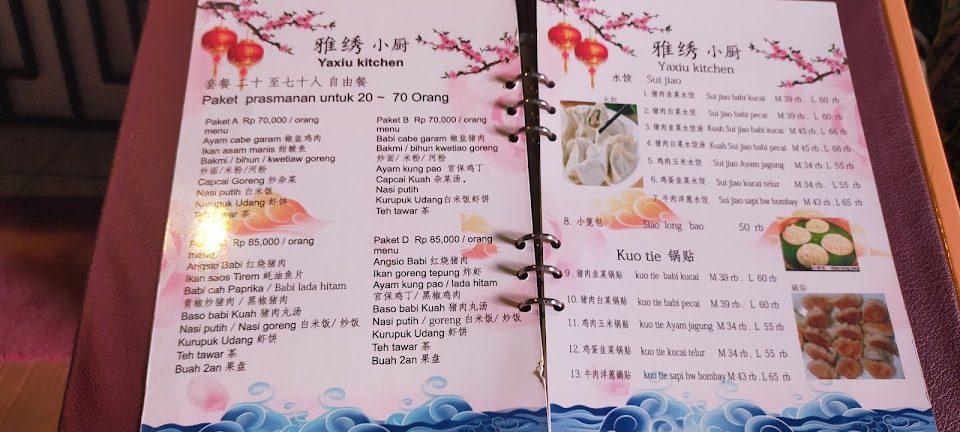 雅绣 小厨
Yaxiu kitchen
套餐 二十 至七十人 自由餐
Paket prasmanan untuk 20 ~ 70 Orang
Paket A Rp 70,000 / orang
menu
Ayam cabe garam 椒盐鸡肉
Ikan asam manis 甜酸鱼
Bakmi / bihun / kwetiaw goreng
炒面/米粉/河粉
Capcai Goreng 炒杂菜
Nasi putih 白米饭
Kurupuk Udang 虾饼
Teh tawar 茶
Paket B Rp 70,000 / orang
menu
Babi cabe garam 椒盐猪肉
Bakmi / bihun kwetiao goreng
炒面 / 米粉 / 河粉
Ayam kung pao 宫保鸡丁
Capcai Kuah 杂菜汤.
Nasi putih
Kurupuk Udang白米饭虾饼
Teh tawar 茶
Rp 85,000 / orang
menu
Angsio Babi 红烧猪肉
Ikan saos Tirem 蚝油鱼片
Babi cah Paprika / Babi lada hitam
青椒炒猪肉 / 黑椒猪肉
Baso babi Kuah 猪肉丸汤
Nasi putih / Nasi goreng 白米饭/ 炒饭
Kurupuk Udang 虾饼
Teh tawar 茶
Buah 2an 果盘
Paket D Rp 85,000 / orang
menu
Angsio Babi 红烧猪肉
Ikan goreng tepung 炸虾
Ayam kung pao / lada hitam
宫保鸡丁/ 黑椒鸡肉
Baso babi Kuah 猪肉丸汤
Nasi putih / goreng 白米饭/ 炒饭
Kurupuk Udang 虾饼
Teh tawar 茶
Buah 2an 果盘
雅绣 小厨
Yaxiu kitchen
水饺 Sui jiao
水饺
1. 猪肉韭菜水饺 Sui jiao babi kucai M 39 rb . L 60 rb
2. 猪肉白菜水饺 Sui jiao babi pecai M 39 rb . L 60 rb
3. 猪肉韭菜水饺汤 Kuah Sui jiao babi kucai M 45 rb . L 66 rb
4. 猪肉白菜水饺汤 Kuah Sui jiao babi pecai M 45 rb . L 66 rb
5. 鸡肉玉米水饺 Sui jiao Ayam jagung M 34 rb . L 55 rb
6. 鸡蛋韭菜水饺 Sui jiao kucai telur M 34 rb . L 55 rb
7. 牛肉洋葱水饺 Sui jiao sapi bw bombay M 43 rb . L 65 rb
8. 小笼包 Siao long bao 50 rb
Kuo tie 锅贴
鍋貼
9 . 猪肉韭菜锅贴 kuo tie babi kucai M 39 rb . L 60 rb
10. 猪肉白菜锅贴 kuo tie babi pecai M 39 rb . L 60 rb
11. 鸡肉玉米锅贴 kuo tie Ayam jagung M 34 rb . L 55 rb
12. 鸡蛋韭菜锅贴 kuo tie kucai telur M 34 rb . L 55 rb
13. 牛肉洋葱锅贴 kuo tie sapi bw bombay M 43 rb . L 65 rb